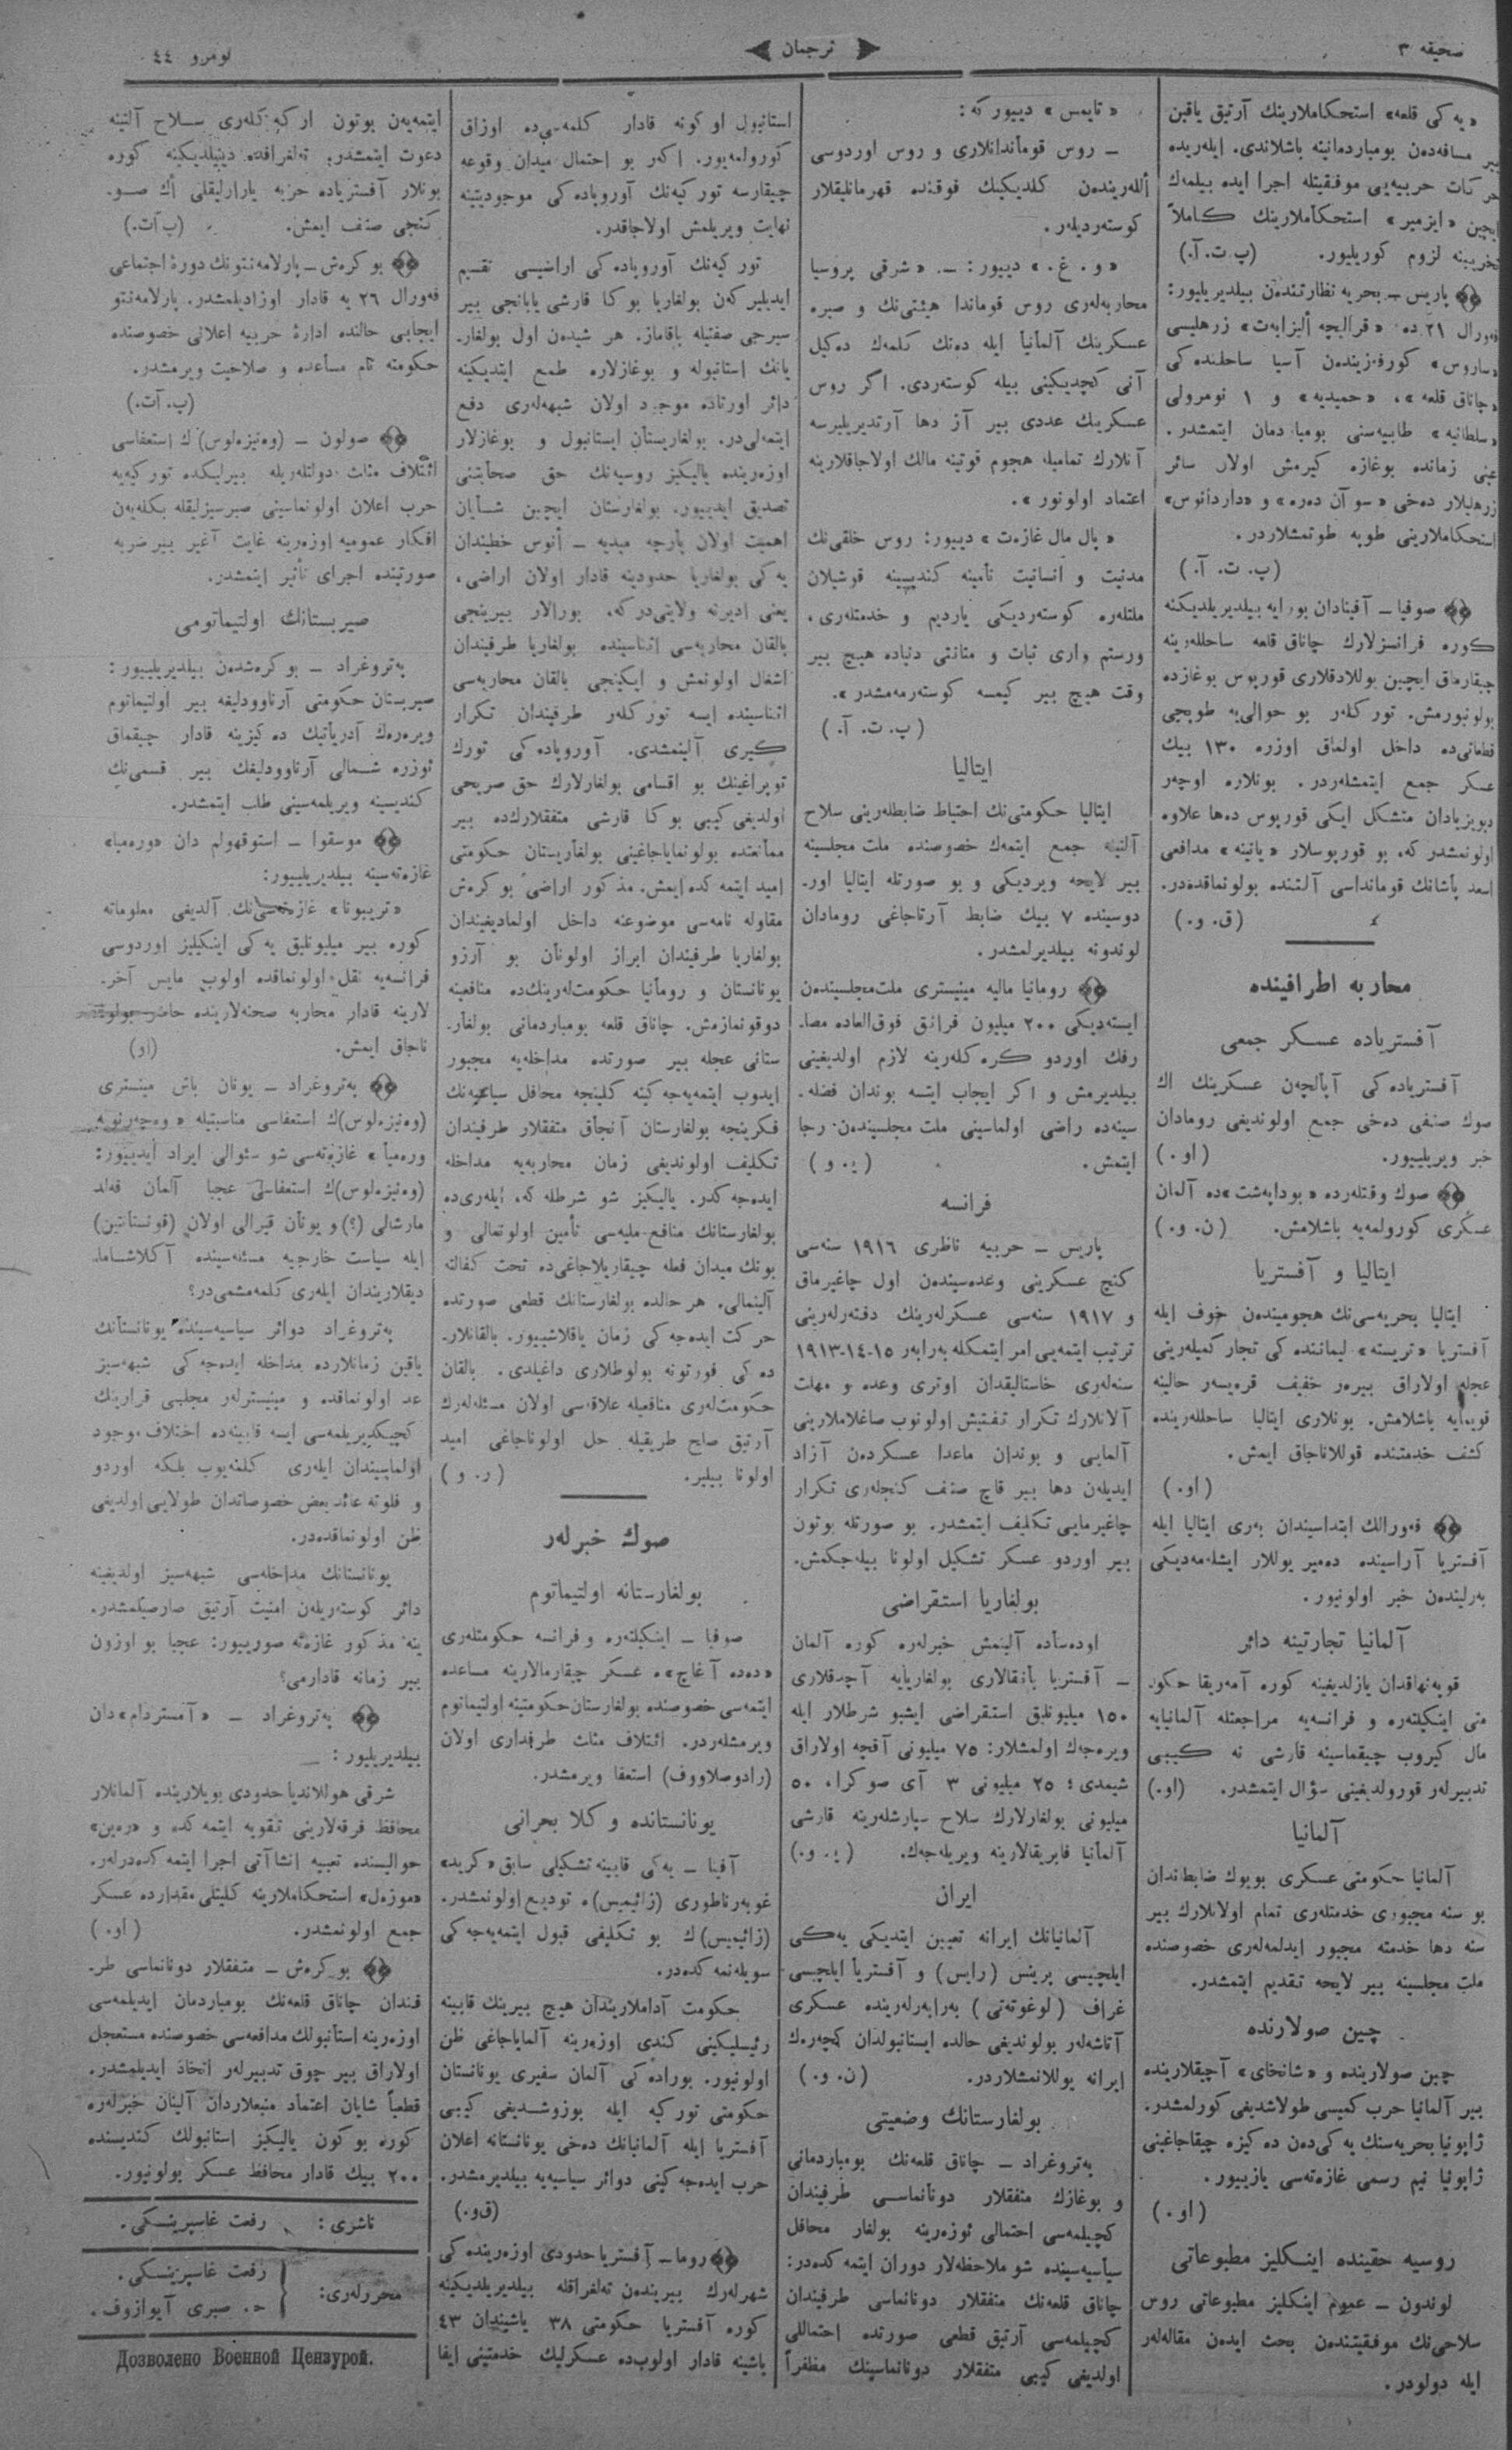 صحيفه ٣
ترجمان
نومرو ٤٤
«يه‌كى قلعه» استحكاملارينك آرتيق ياقين
بير مسافه‌دن بومباردمانينه باشلاندى. ايله‌ريده
حركات حربيه‌يى موفقيتله اجرا ايده بيلمه‌ك
ايچين «ايزمير» استحكاملارينك كاملاً
تخريبنه لزوم كوريليور. (پ.ت.آ.)
پاريس ــ بحريه نظارتندن بيلديريليور:
فه‌ورال ٢١ ده «قراليچه أليزابه‌ت» زرهليسى
«ساروس» كورفزيندن آسيا ساحلنده‌كى
«چاناق قلعه»، «حميديه» و ١ نومرولى
«سلطانيه» طابيه‌سنى بومباردمان ايتمشدر.
عينى زمانده بوغازه كيرمش اولان سائر
زرهليلار ده‌خى «سو آن ده‌ره» و «داردانوس»
استحكاملارينى طوپه طوتمشلاردر.
(پ. ت. آ.)
صوفيا ــ آفينادان بورايه بيلديريلديكنه
كوره فرانسزلارك چاناق قلعه ساحللرينه
چيقارماق ايچين يوللادقلارى قورپوس بوغازده
بولونيورمش. توركلر بو حوالى‌يه طوپچى
قطعاتى‌ده داخل اولماق اوزره ١٣٠ بيك
عسكر جمع ايتمشله‌ردر. بونلاره اوچه‌ر
ديويزيادان متشكل ايكى قورپوس ده‌ها علاوه
اولونمشدر كه، بو قورپوسلار «يانيه» مدافعى
اسعد پاشانك قومانداسى آلتنده بولونماقده‌در.
(ق. و.)
محاربه اطرافينده
آفسترياده عسكر جمعى
آفسترياده‌كى آپالچه‌ن عسكرينك اك
صوك صنفى ده‌خى جمع اولونديغى رومادان
خبر ويريليور. (او.)
صوك وقتله‌رده «بوداپه‌شت»ده آلمان
عسكرى كورولمه‌يه باشلامش. (ن. و.)
ايتاليا و آفستريا
ايتاليا بحريه‌سى‌نك هجوميندن خوف ايله
آفستريا «تريسته» ليماننده‌كى تجار كميله‌رينى
عجله اولاراق بيره‌ر خفيف قره‌يسه‌ر حالينه
قويمايه باشلامش. بونلارى ايتاليا ساحللرينده
كشف خدمتنده قوللاناجاق ايمش.
(او.)
فه‌ورالك ابتداسيندان به‌رى ايتاليا ايله
آفستريا آراسينده ده‌مير يوللار ايشله‌مه‌ديكى
به‌رلينده‌ن خبر اولونيور.
آلمانيا تجارتينه دائر
قوپه‌نهاقدان يازلديغينه كوره آمه‌ريقا حكو.
متى اينكيلته‌ره و فرانسه‌يه مراجعتله آلمانيايه
مال كيروب چيقماسينه قارشى نه كيبى
تدبيرلر قورولديغينى سؤال ايتمشدر. (او.)
آلمانيا
آلمانيا حكومتى عسكرى بويوك ضابطاندان
بو سنه مجبورى خدمتله‌رى تمام اولانلارك بير
سنه دها خدمته مجبور ايدلمه‌له‌رى خصوصنده
ملت مجلسينه بير لايحه تقديم ايتمشدر.
چين صولارنده
چين صولارينده و «شانخاى» آچيقلارينده
بير آلمانيا حرب كميسى طولاشديغى كورلمشدر.
ژاپونيا بحريه‌سنك يه‌كى‌ده‌ن ده‌كيزه چيقاجاغينى
ژاپونيا نيم رسمى غازه‌ته‌سى يازييور.
(او.)
روسيه حقينده اينكليز مطبوعاتى
لوندون ــ عموم اينكليز مطبوعاتى روس
سلاحى‌نك موفقيتندن بحث ايدن مقاله‌لر
ايله دولودر.
«تايمس» دييوركه:
ــ روس قوماندانلارى و روس اوردوسى
ألله‌رينده‌ن كلديكينك فوقنده قهرمانليقلار
كوسته‌رديله‌ر.
«و. غ.» دييور: ــ. «شرقى پروسيا
محاربه‌له‌رى روس قوماندا هيئتى‌نك و صيره
عسكرينك آلمانيا ايله ده‌نك كلمه‌ك ده‌كيل
آنى كچديكينى بيله كوسته‌ردى. اكر روس
عسكرينك عددى بير آز دها آرتديريليرسه
آنلارك تماميله هجوم قوتينه مالك اولاجاقلارينه
اعتماد اولونور».
«پال مال غازه‌ت» دييور: روس خلقى‌نك
مدنيت و انسانيت نأمينه كنديسينه قوشيلان
ملتله‌ره كوسته‌رديكى يارديم و خدمتله‌رى،
ورستم وارى ثبات و متانتى دنياده هيچ بير
وقت هيچ بير كيمسه كوسته‌رمه‌مشدر».
(پ. ت. آ.)
ايتاليا
ايتاليا حكومتى‌نك احتياط ضابطله‌رينى سلاح
آلتينه جمع ايتمه‌ك خصوصنده ملت مجلسينه
بير لايحه ويرديكى و بو صورتله ايتاليا اور.
دوسينده ٧ بيك ضابط آرتاجاغى رومادان
لوندونه بيلديرلمشدر.
رومانيا ماليه مينيسترى ملت‌مجلسيندن
ايسته‌ديكى ٢٠٠ ميليون فرانق فوق‌العاده مصا.
رفك اوردو كره‌كله‌رينه لازم اولديغينى
بيلديرمش و اكر ايجاب ايتسه بوندان فضله.
سينه‌ده راضى اولماسينى ملت مجلسيندن رجا
ايتمش. (ي. و)
فرانسه
پاريس ــ حربيه ناظرى ١٩١٦ سنه‌سى
كنچ عسكرينى وعده‌سيندن اول چاغيرماق
و ١٩١٧ سنه‌سى عسكرله‌رينك دفتر‌له‌رينى
ترتيب ايتمه‌يى امر ايتمكله به‌رابه‌ر ١٥-١٤-١٩١٣
سنه‌له‌رى خاستاليقدان اوترى وعده و مهلت
آلانلارك تكرار تفتيش اولونوب صاغلاملارينى
آلمايى و بوندان ماعدا عسكردن آزاد
ايديلن دها بير قاچ صنف كنجله‌رى تكرار
چاغيرمايى تكليف ايتمشدر. بو صورتله بوتون
بير اوردو عسكر تشكيل اولونا بيله‌جكمش.
بولغاريا استقراضى
اوده‌سأده آلينمش خبرله‌ره كوره آلمان
ــ آفستريا بأنقالارى بولغاريايه آچدقلارى
١٥٠ ميليونلق استقراضى ايشبو شرطلار ايله
ويره‌جه‌ك اولمشلار: ٧٥ ميليونى آقچه اولاراق
شيمدى؛ ٢٥ ميليونى ٣ آى صوكرا، ٥٠
ميليونى بولغارلارك سلاح سپارشله‌رينه قارشى
آلمانيا فابريقالارينه ويريله‌جه‌ك. (ي. و.)
ايران
آلمانيانك ايرانه تعيين ايتديكى يه‌كى
ايلچيسى پرينس (رايس) و آفستريا ايلچيسى
غراف (لوغوته‌تى) به‌رابه‌رله‌رينده عسكرى
آتاشه‌لر بولونديغى حالده ايستانبولدان كچه‌ره‌ك
ايرانه يوللانمشلاردر. (ن. و.)
بولغارستانك وضعيتى
په‌تروغراد ــ چاناق قلعه‌نك بومباردمانى
و بوغازك متفقلار دونانماسى طرفيندان
كچيلمه‌سى احتمالى ئوزه‌رينه بولغار محافل
سياسيه‌سينده شو ملاحظه‌لار دوران ايتمه‌كده‌در:
چاناق قلعه‌نك متفقلار دونانماسى طرفيندان
كچيلمه‌سى آرتيق قطعى صورتده احتماللى
اولديغى كيبى متفقلار دونانماسينك مظفراً
استانبول اوكونه قادار كلمه‌سى‌ده اوزاق
كورولمه‌يور. اكر بو احتمال ميدان وقوعه
چيقارسه توركيه‌نك آوروپاده‌كى موجوديتينه
نهايت ويريلمش اولاجاقدر.
توركيه‌نك آوروپاده‌كى اراضيسى تقسيم
ايديليركن بولغاريا بوكا قارشى يابانجى بير
سيرجى صفتيله باقاماز. هر شيدن اول بولغار.
يانك إستانبوله و بوغازلاره طمع ايتديكينه
دائر اورتاده موجود اولان شبهه‌له‌رى دفع
ايتمه‌لى‌در. بولغاريستان ايستانبول و بوغازلار
اوزه‌رينده يالكيز روسيه‌نك حق صحابتينى
تصديق ايدييور. بولغارستان ايچين شايان
اهميت اولان پارچه ميديه ــ أنوس خطيندان
يه‌كى بولغاريا حدودينه قادار اولان اراضى،
يعنى اديرنه ولايتى‌دركه، بورالار بيرينجى
بالقان محاربه‌سى اثناسينده بولغاريا طرفيندان
اشغال اولونمش و ايكينجى بالقان محاربه‌سى
اثناسينده ايسه توركلر طرفيندان تكرار
كيرى آلينمشدى. آوروپاده‌كى تورك
توپراغينك بو اقسامى بولغارلارك حق صريحى
اولديغى كيبى بوكا قارشى متفقلارك‌ده بير
ممانعتده بولونماياجاغينى بولغاريستان حكومتى
اميد ايتمه‌كده‌ايمش. مذكور اراضى بوكرش
مقاوله نامه‌سى موضوعنه داخل اولماديغيندان
بولغاريا طرفيندان ابراز اولونان بو آرزو
يونانستان و رومانيا حكومت‌له‌رينك‌ده منافعينه
دوقونمازمش. چاناق قلعه بومباردمانى بولغار.
ستانى عجله بير صورتده مداخله‌يه مجبور
ايدوب ايتمه‌يه‌جه‌كينه كلينجه محافل سياسيه‌نك
فكرينجه بولغارستان آنجاق متفقلار طرفيندان
تكليف اولونديغى زمان محاربه‌يه مداخله
ايده‌جه‌كدر. يالكيز شو شرطله كه، ايله‌رى‌ده
بولغارستانك منافع مليه‌سى تأمين اولونمالى و
بونك ميدان فعله چيقاريلاجاغى‌ده تحت كفالته
آلينمالى. هر حالده بولغارستانك قطعى صورتده
حركت ايده‌جه‌كى زمان ياقلاشييور. بالقانلار.
ده‌كى فورتونه بولوطلارى داغيلدى. بالقان
حكومت‌له‌رى منافعيله علاقه‌سى اولان مسئله‌له‌رك
آرتيق صلح طريقيله حل اولوناجاغى اميد
اولونا بيلير. (ر. و)
صوك خبرله‌ر
بولغارستانه اولتيماتوم
صوفيا ــ اينكيلته‌ره و فرانسه حكومتله‌رى
«ده‌ده آغاچ»ه عسكر چيقارمالارينه مساعده
ايتمه‌سى خصوصنده بولغارستان حكومتينه اولتيماتوم
ويرمشله‌ردر. ائتلاف مثلث طرفدارى اولان
(رادوصلاووف) استعفا ويرمشدر.
يونانستانده وكلا بحرانى
آفينا ــ يه‌كى قابينه تشكيلى سابق «كريد»
غوبه‌رناطورى (زائيميس)ه توديع اولونمشدر.
(زائيميس)ك بو تكليفى قبول ايتمه‌يه‌جه‌كى
سويله‌نمه‌كده‌در.
حكومت آداملاريندان هيچ بيرينك قابينه
رئيسليكينى كندى اوزه‌رينه آلماياجاغى ظن
اولونيور. بوراده‌كى آلمان سفيرى يونانستان
حكومتى توركيه ايله بوزوشديغى كيبى
آفستريا ايله آلمانيانك ده‌خى يونانستانه اعلان
حرب ايده‌جه‌كينى دوائر سياسيه‌يه بيلديرمشدر.
(ق‌و.)
روما ــ آفستريا حدودى اوزه‌رينده‌كى
شهرله‌رك بيرينده‌ن ته‌لغرافله بيلديريلديكينه
كوره آفستريا حكومتى ٣٨ ياشيندان ٤٣
ياشينه قادار اولوب‌ده عسكرليك خدمتينى ايفا
ايتمه‌يه‌ن بوتون اركه‌كله‌رى سلاح آلتينه
دعوت ايتمشدر. ته‌لغرافده دينيلديكينه كوره
بونلار آفسترياده حربه يارارليقلى اك صو.
كنجى صنف ايمش. (پ.آت.)
بوكرش ــ پارلامه‌نتونك دورۀ اجتماعى
فه‌ورال ٢٦ يه قادار اوزاديلمشدر. پارلامه‌نتو
ايجابى حالنده ادارۀ حربيه اعلانى خصوصنده
حكومته تام مساعده و صلاحيت ويرمشدر.
(پ. آت.)
صولون ــ (وه‌نيزه‌لوس)ك إستعفاسى
ائتلاف مثلث دولتله‌ريله بيرليكده توركيه‌يه
حرب اعلان اولونماسينى صبرسيزليقله بكله‌يه‌ن
افكار عموميه اوزه‌رينه غايت آغير بير ضربه
صورتينده اجراى تأثير ايتمشدر.
صيربستانك اولتيماتومى
په‌تروغراد ــ بوكره‌شده‌ن بيلديريلييور:
صيربستان حكومتى آرناوودليغه بير اولتيماتوم
ويره‌ره‌ك آدرياتيك ده‌كيزينه قادار چيقماق
ئوزره شمالى آرناوودليغك بير قسمى‌نك
كنديسينه ويريلمه‌سينى طلب ايتمشدر.
موسقوا ــ استوقهولم دان «وره‌ميا»
غازه‌ته‌سينه بيلديريلييور:
«تريبونا» غازه‌ته‌سى‌نك آلديغى معلوماته
كوره بير ميليونلق يه‌كى اينكيليز اوردوسى
فرانسه‌يه نقل اولونماقده اولوب مايس آخر.
لارينه قادار محاربه صحنه‌لارينده حاضر بولونا.
ناجاق ايمش. (او)
په‌تروغراد ــ يونان باش مينيسترى
(وه‌نيزه‌لوس)ك استعفاسى مناسبتيله «وه‌چه‌رنويه
وره‌ميا» غازه‌ته‌سى شو سئوالى ايراد ايدييور:
(وه‌نيزه‌لوس)ك استعفاسى عجبا آلمان فه‌لد
مارشالى (؟) و يونان قيرالى اولان (قونستانتين)
ايله سياست خارجيه مسئه‌سينده آكلاشاما.
ديقلاريندان ايله‌رى كلمه‌مشمى‌در؟
په‌تروغراد دوائر سياسيه‌سينده يونانستانك
ياقين زمانلارده مداخله ايده‌جه‌كى شبهه‌سيز
عد اولونماقده و مينيسترلر مجلسى قرارينك
كچيكديريلمه‌سى ايسه قابينه‌ده اختلاف موجود
اولماسيندان ايله‌رى كلمه‌يوب بلكه اوردو
و فلوته عائد بعض خصوصاتدان طولايى اولديغى
ظن اولونماقده‌در.
يونانستانك مداخله‌سى شبهه‌سيز اولديغينه
دائر كوسته‌ريله‌ن امنيت آرتيق صارصيلمشدر.
ينه مذكور غازه‌ته صورييور: عجبا بو اوزون
بير زمانه قادارمى؟
په‌تروغراد ــ «آمستردام»دان
بيلديريليور: ــ
شرقى هوللانديا حدودى بويلارينده آلمانلار
محافظ فرقه‌لارينى تقويه ايتمه‌كده و «ره‌ين»
حواليسنده تعبيه إنشاآتى اجرا ايتمه‌كده‌درلر.
«موزه‌ل» استحكاملارينه كليتلى مقدارده عسكر
جمع اولونمشدر. (او.)
بوكرش ــ متفقلار دونانماسى طر.
فندان چاناق قلعه‌نك بومباردمان ايديلمه‌سى
اوزه‌رينه استانبولك مدافعه‌سى خصوصنده مستعجل
اولاراق بير چوق تدبيرلر اتخاذ ايديلمشدر.
قطعياً شايان اعتماد منبعلاردان آلينان خبرله‌ره
كوره بوكون يالكيز استانبولك كنديسنده
٢٠٠ بيك قادار محافظ عسكر بولونيور.
ناشرى: رفعت غاسپرينسكى.
محررله‌رى: رفعت غاسپرينسكى.
ح. صبرى آيوازوف.
Дозволено Военной Цензурой.